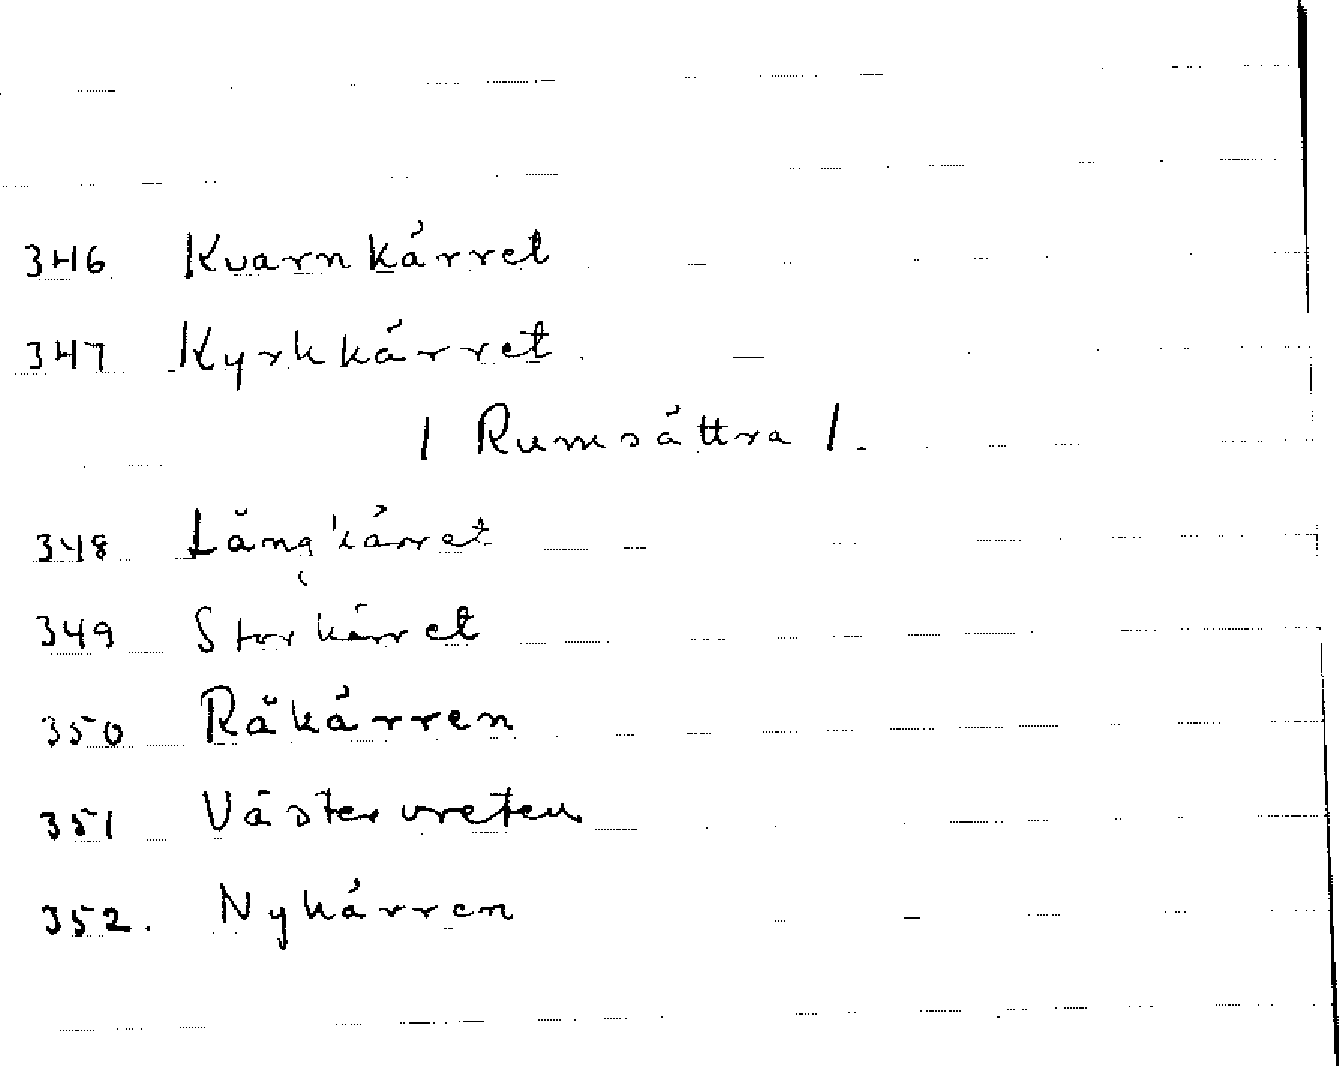 346 Kvarnkärret
347 Kyrkkärret.
/ Rumsättra /.
348 Långkärret
349 Storkärret
350 Råkärren
351 Västervreten
352. Nykärren